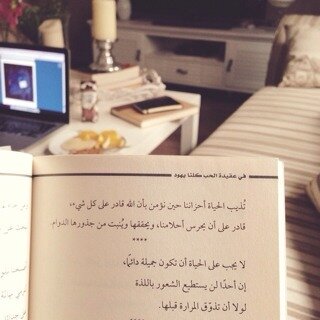 في عقيدة الحب كلنا يهود
تُذيب الحياة أحزاننا حين نؤمن بأن الله قادر على كل شيء،
قادر على أن يحرس أحلامنا، ويحققها ويُنبت من جذورها الدوام.
****
لا يجب على الحياة أن تكون جميلة دائمًا،
إن أحدًا لن يستطيع الشعور باللذة
لولا أن تذوّق المرارة قبلها.
****